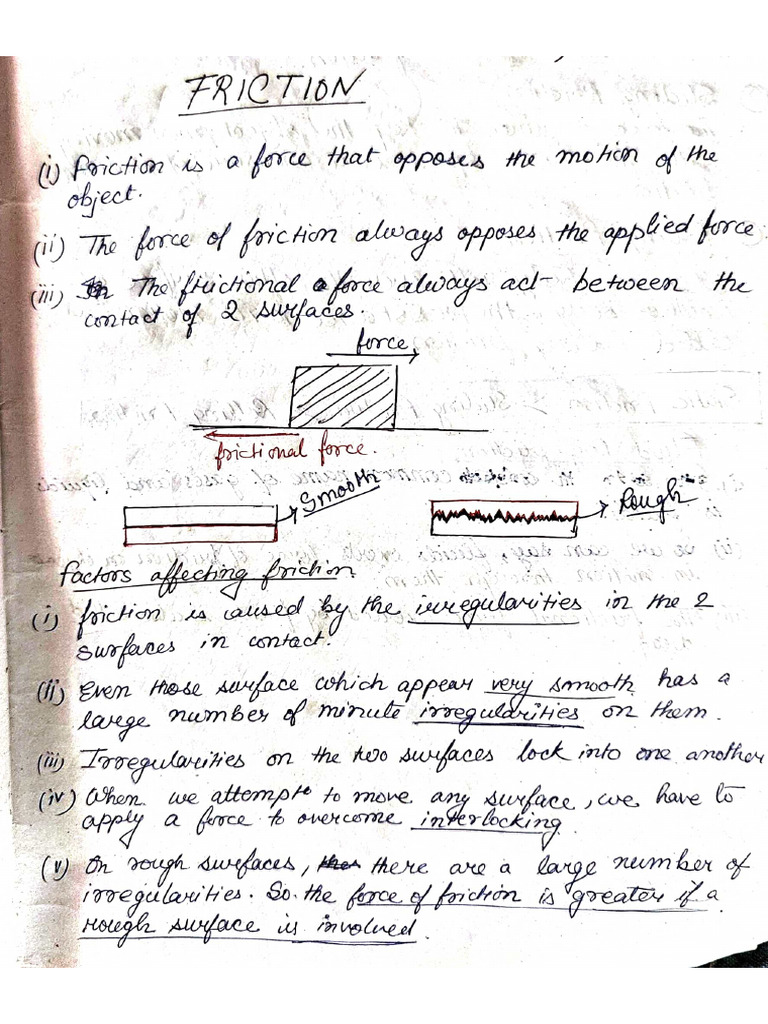 FRICTION
(i) Friction is a force that opposes the motion of the
object.
(ii) The force of friction always opposes the applied force
(iii) The frictional force always act between the
contact of 2 surfaces.
force
frictional force.
Smooth
Rough
factors affecting friction
(i) friction is caused by the irregularities in the 2
surfaces in contact.
(ii) Even those surface which appear very smooth has a
large number of minute irregularities on them.
(iii) Irregularities on the two surfaces lock into one another
(iv) When we attempt to move any surface, we have to
apply a force to overcome interlocking
(v) On rough surfaces, there are a large number of
irregularities. So the force of friction is greater if a
rough surface is involved.